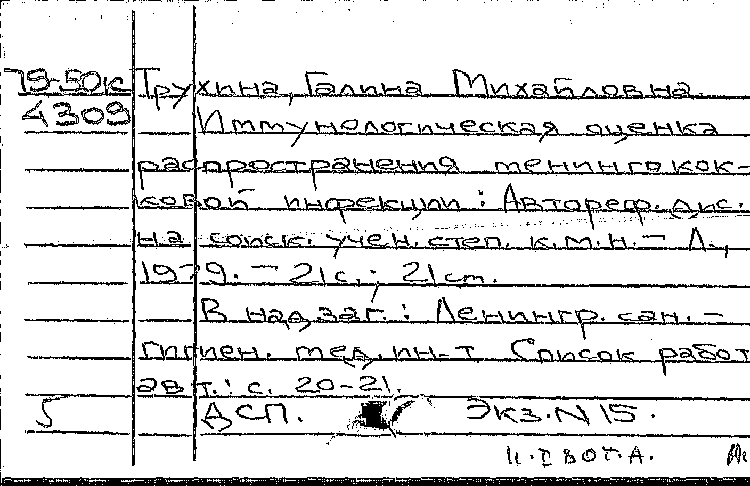 79-50к Трухина, Галина Михайловна.
4309 Иммунологическая оценка
распространения менингокок-
ковой инфекции : Автореф. дис.
на соиск. учен. степ. к.м.н. – Л.,
1979. – 21 с. ; 21 см.
В надзаг. : Ленингр. сан. –
гигиен. мед. ин-т. Список работ
авт. : с. 20-21.
5 ДСП. Экз. N 15.